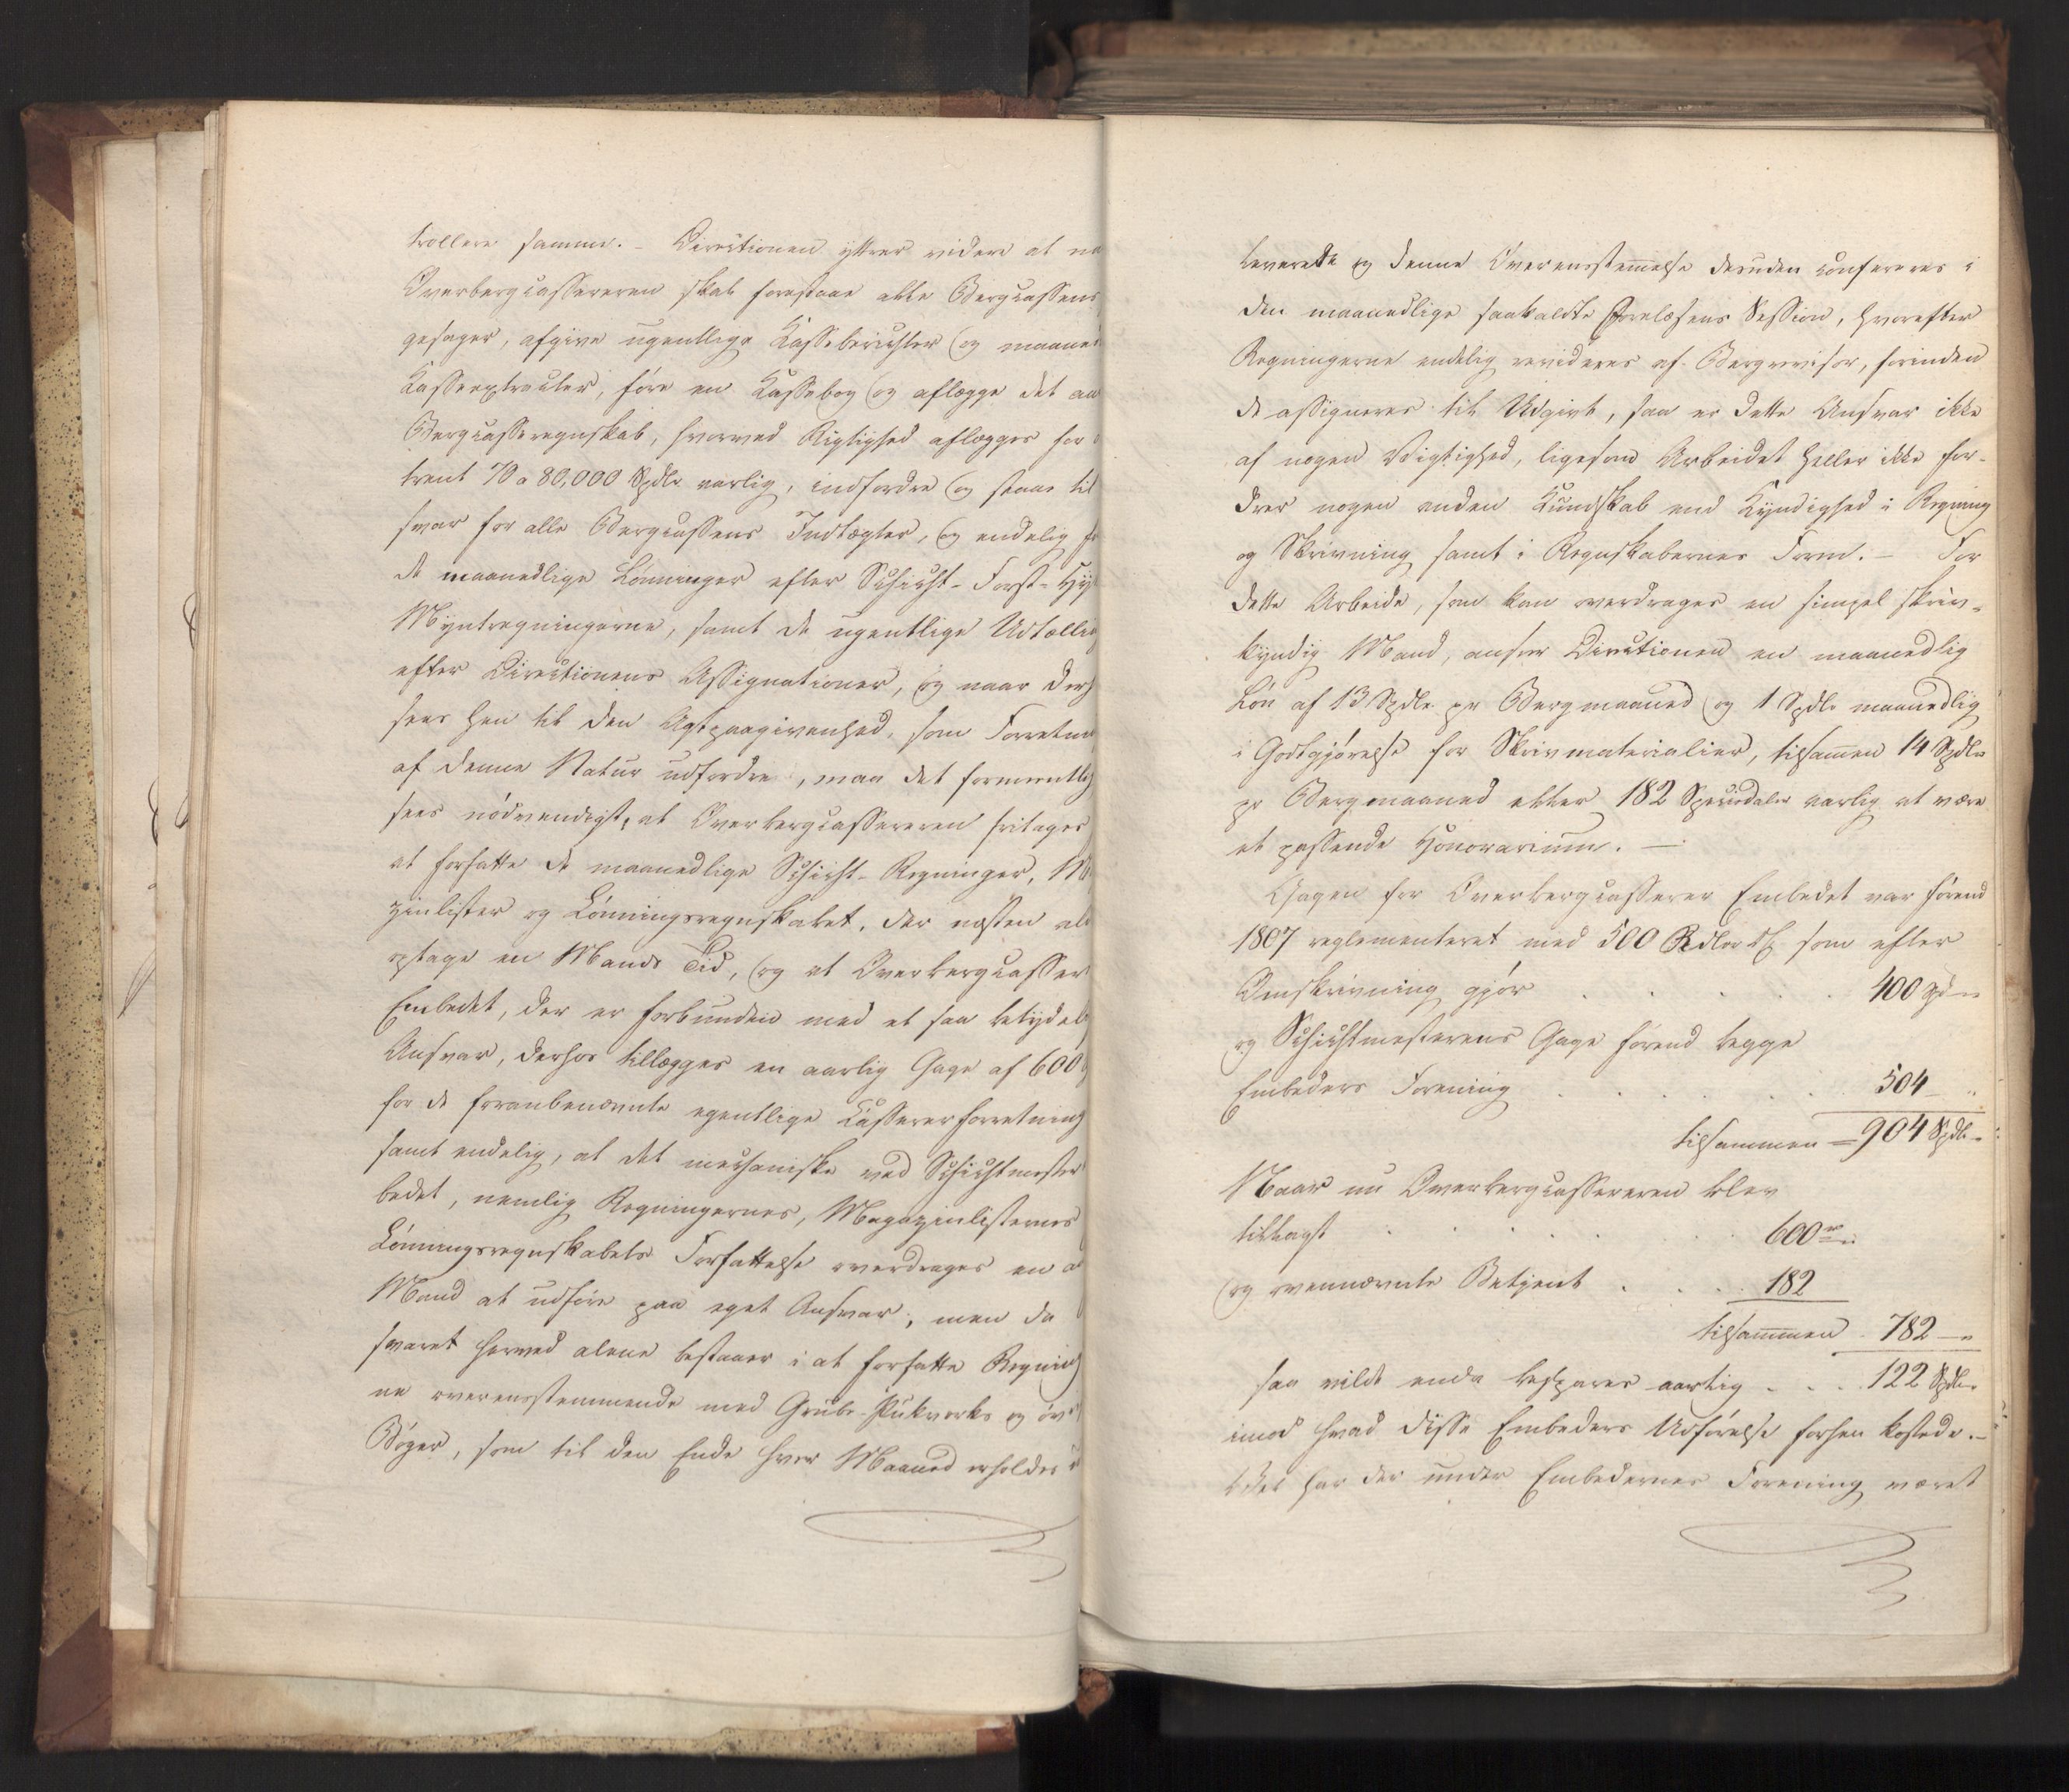 trollere samme. – Directionen yttrer videre at na
Overbergcassereren skal forestaae alle Bergcassens
gesager, afgive ugentlige Kasseberichter og maaned
Kasseextracter, føre en Kassebog og aflægge det aa
Bergcasseregnskab, hvorved Rigtighed aflægges for
trent 70 a 80,000 Spdlr aarlig, indfordre og staae til
svar for alle Bergcassens Indtægter, og endelig
de maanedlige Lønninger efter Schicht- Forst- Hyt
Myntregningerne, samt de ugentlige Udtælling
efter Directionens Assignationer, og naar der
sees hen til den Agtpaagivenhed, som Forretn
af denne Natur udfordre, maa det formeentlig
sees nødvendigt, at Overbergcassereren fritages
at forfatte de maanedlige Schicht-Regninger, M
zinlister og Lønningsregnskabet, der næsten al
optage en Mands Tid, og at Overbergcasser
Embedet, der er forbunden med et saa betydel
Ansvar, derhos tillægges en aarlig Gage af 600
for de foranbenævnte egentlige Casserer forretning
samt endelig, at det mechaniske ved Schichtmester
bedet, nemlig Regningernes, Magazinlisternes
Lønningsregnskabets Forfattelse overdrages en a
Mand at udføre paa eget Ansvar, men da
svaret herved alene bestaaer i at forfatte Regning
ne overensstemmende med Grube- Pukverks og øv
Bøger, som til den Ende hver Maaned erholdes
leverede og denne Overensstemmelse desuden confereres i
den maanedlige saakaldte Forelæsens Session, hvorefter
Regningerne endelig revideres af Bergrevisor, forinden
de assigneres til Udgivt, saa er dette Ansvar ikke
af nogen Vigtighed, ligesom Arbeidet heller ikke for-
drer nogen anden Kundskab end Kyndighed i Regning
og Skrivning samt i Regnskabernes Form. – For
dette Arbeide, som kan overdrages en simpel skriv-
kyndig Mand, anseer Directionen en maanedlig
Løn af 13 Spdlr pr Bergmaaned og 1 Spdlr maanedlig
i Godtgjørelse for Skrivmaterialier, tilsammen 14 Spdlr
pr Bergmaaned eller 182 Speciedaler aarlig at være
et passende Honorarium. –
Gagen for Overbergcasserer Embedet var førend
1807 reglementeret med 500 Rdlr som efter
Omskrivning gjør . . . . 400
og Schichtmesterens Gage førend begge
Embeders Forening . . . . 504
tilsammen = 904 Spdlr
Naar nu Overbergcassereren blev
tillagt . . . . 600
og ovennævnte Betjent . . . 182
tilsammen . 782
saa vilde enda bespares aarlig . . . 122 Spdlr
imod hvad disse Embeders Udførelse forhen kostede. –
har der under Embedernes Forening været